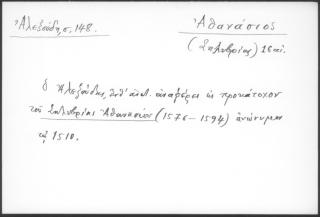 Ἀλεξούδης, σ. 148.
Ἀθανάσιος
(Σηλυβρίας) 16 αἰ.
ὁ Ἀλεξούδης, ἀναφέρει ὡς προκάτοχον
τοῦ Σηλυβρίας Ἀθανασίου (1576-1594) ἀνώνυμον
τῷ 1510.